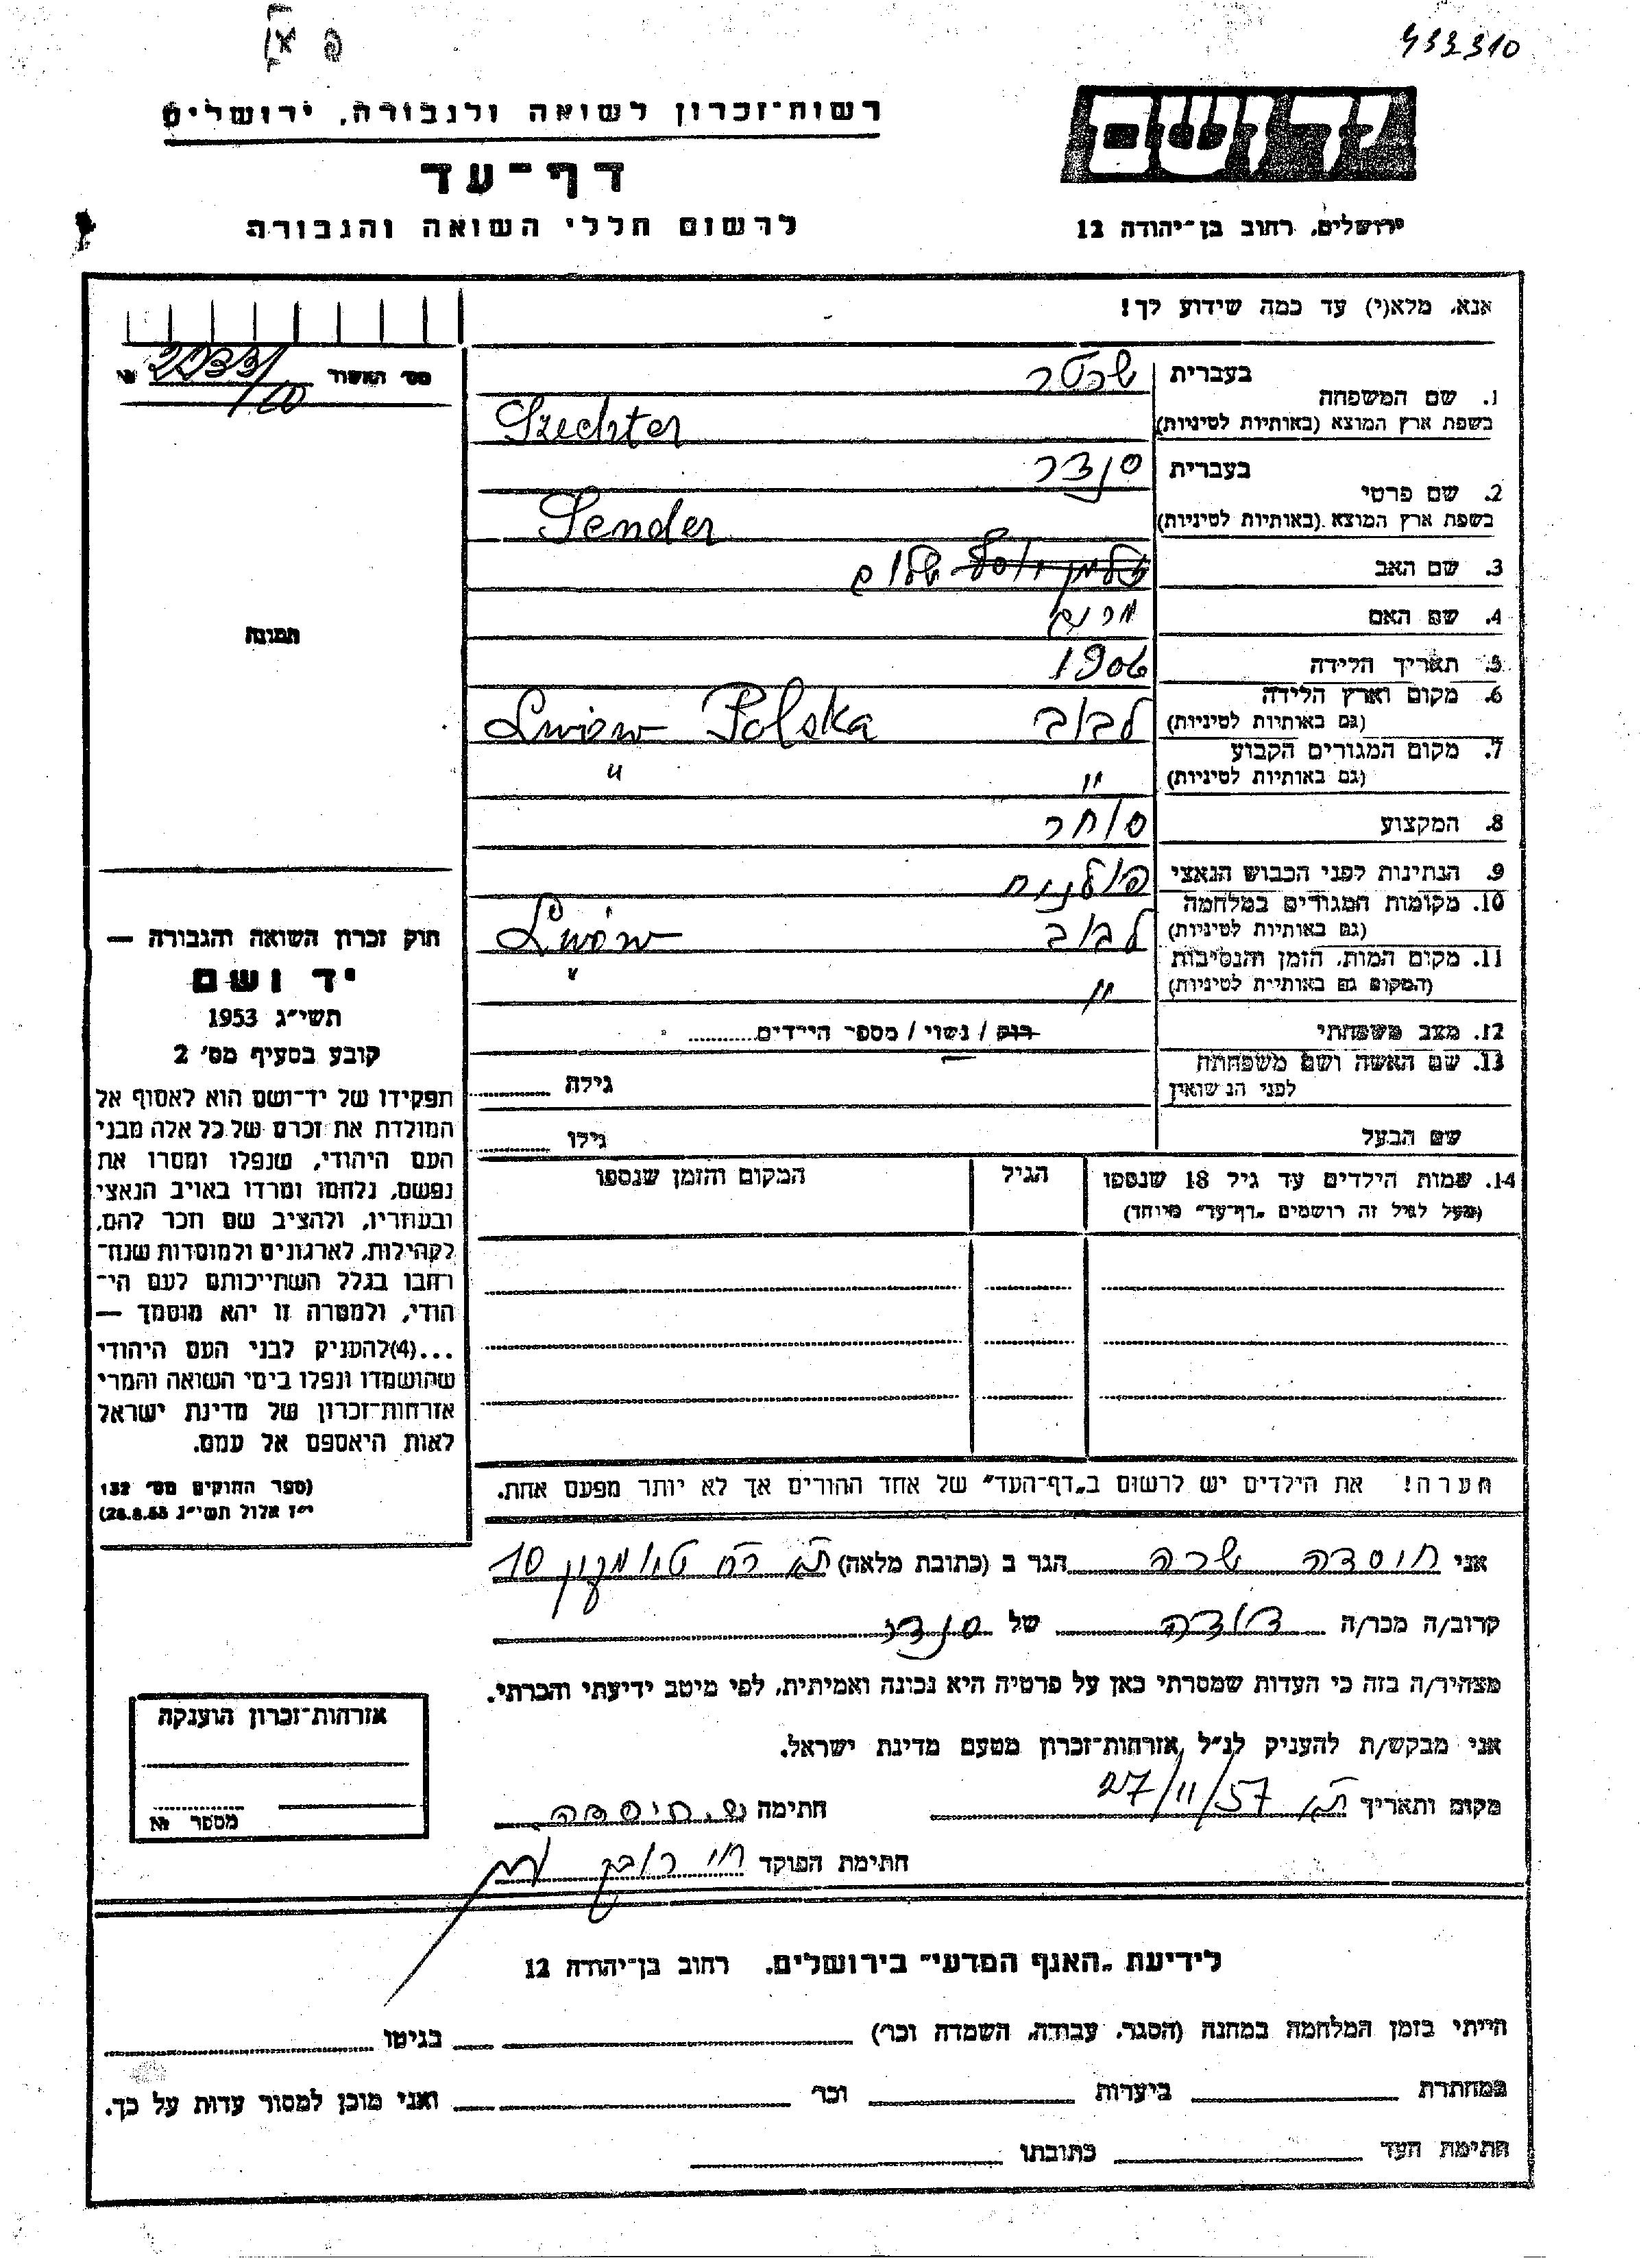 433310
רשות־זכרון לשואה ולגבורה, ירושלים
יד ושם
דף־עד
לרשום חללי השואה והגבורה
ירושלים, רחוב בן־יהודה 12
אנא, מלא(י) עד כמה שידוע לך!
מס׳ האשור №
1. שם המשפחה
בעברית שכטר
בשפת ארץ המוצא (באותיות לטיניות) Szechter
2. שם פרטי
בעברית סנדר
בשפת ארץ המוצא (באותיות לטיניות) Sender
3. שם האב שלום
4. שם האם מרים
5. תאריך הלידה 1906
6. מקום וארץ הלידה
(גם באותיות לטיניות) לבוב Lwów Polska
7. מקום המגורים הקבוע
(גם באותיות לטיניות) " "
8. המקצוע סוחר
9. הנתינות לפני הכבוש הנאצי פולנית
10. מקומות המגורים במלחמה
(גם באותיות לטיניות) לבוב Lwów
11. מקום המות, הזמן והנסיבות
(המקום גם באותיות לטיניות) " "
12. מצב משפחתי רווק / נשוי / מספר הילדים
13. שם האשה ושם משפחתה
לפני הנשואין גילה
שם הבעל גילו
14. שמות הילדים עד גיל 18 שנספו
(מעל לגיל זה רושמים „דף־עד״ מיוחד)
הגיל
המקום והזמן שנספו
תמונה
חוק זכרון השואה והגבורה —
יד ושם
תשי״ג 1953
קובע בסעיף מס׳ 2
תפקידו של יד־ושם הוא לאסוף אל
המולדת את זכרם של כל אלה מבני
העם היהודי, שנפלו ומסרו את
נפשם, נלחמו ומרדו באויב הנאצי
ובעוזריו, ולהציב שם וזכר להם,
לקהילות, לארגונים ולמוסדות שנח־
רבו בגלל השתייכותם לעם הי־
הודי, ולמטרה זו יהא מוסמך —
...(4)להעניק לבני העם היהודי
שהושמדו ונפלו בימי השואה והמרי
אזרחות־זכרון של מדינת ישראל
לאות היאספם אל עמם.
(ספר החוקים מס׳ 132
י״ז אלול תשי״ג 28.8.53)
הערה! את הילדים יש לרשום ב„דף־העד״ של אחד ההורים אך לא יותר מפעם אחת.
אני חוסדה שרה הגר ב (כתובת מלאה) ת״א רח׳ 10
קרוב/ה מכר/ה דודה של סנדר
מצהיר/ה בזה כי העדות שמסרתי כאן על פרטיה היא נכונה ואמיתית, לפי מיטב ידיעתי והכרתי.
אני מבקש/ת להעניק לנ״ל אזרחות־זכרון מטעם מדינת ישראל.
מקום ותאריך ת״א 27/11/57 חתימה ש. חוסדה
חתימת הפוקד
אזרחות־זכרון הוענקה
מספר №
לידיעת „האגף המדעי״ בירושלים, רחוב בן־יהודה 12
הייתי בזמן המלחמה במחנה (הסגר, עבודה, השמדה וכו׳) בגיטו
במחתרת ביערות וכו׳ ואני מוכן למסור עדות על כך.
חתימת העד כתובתו